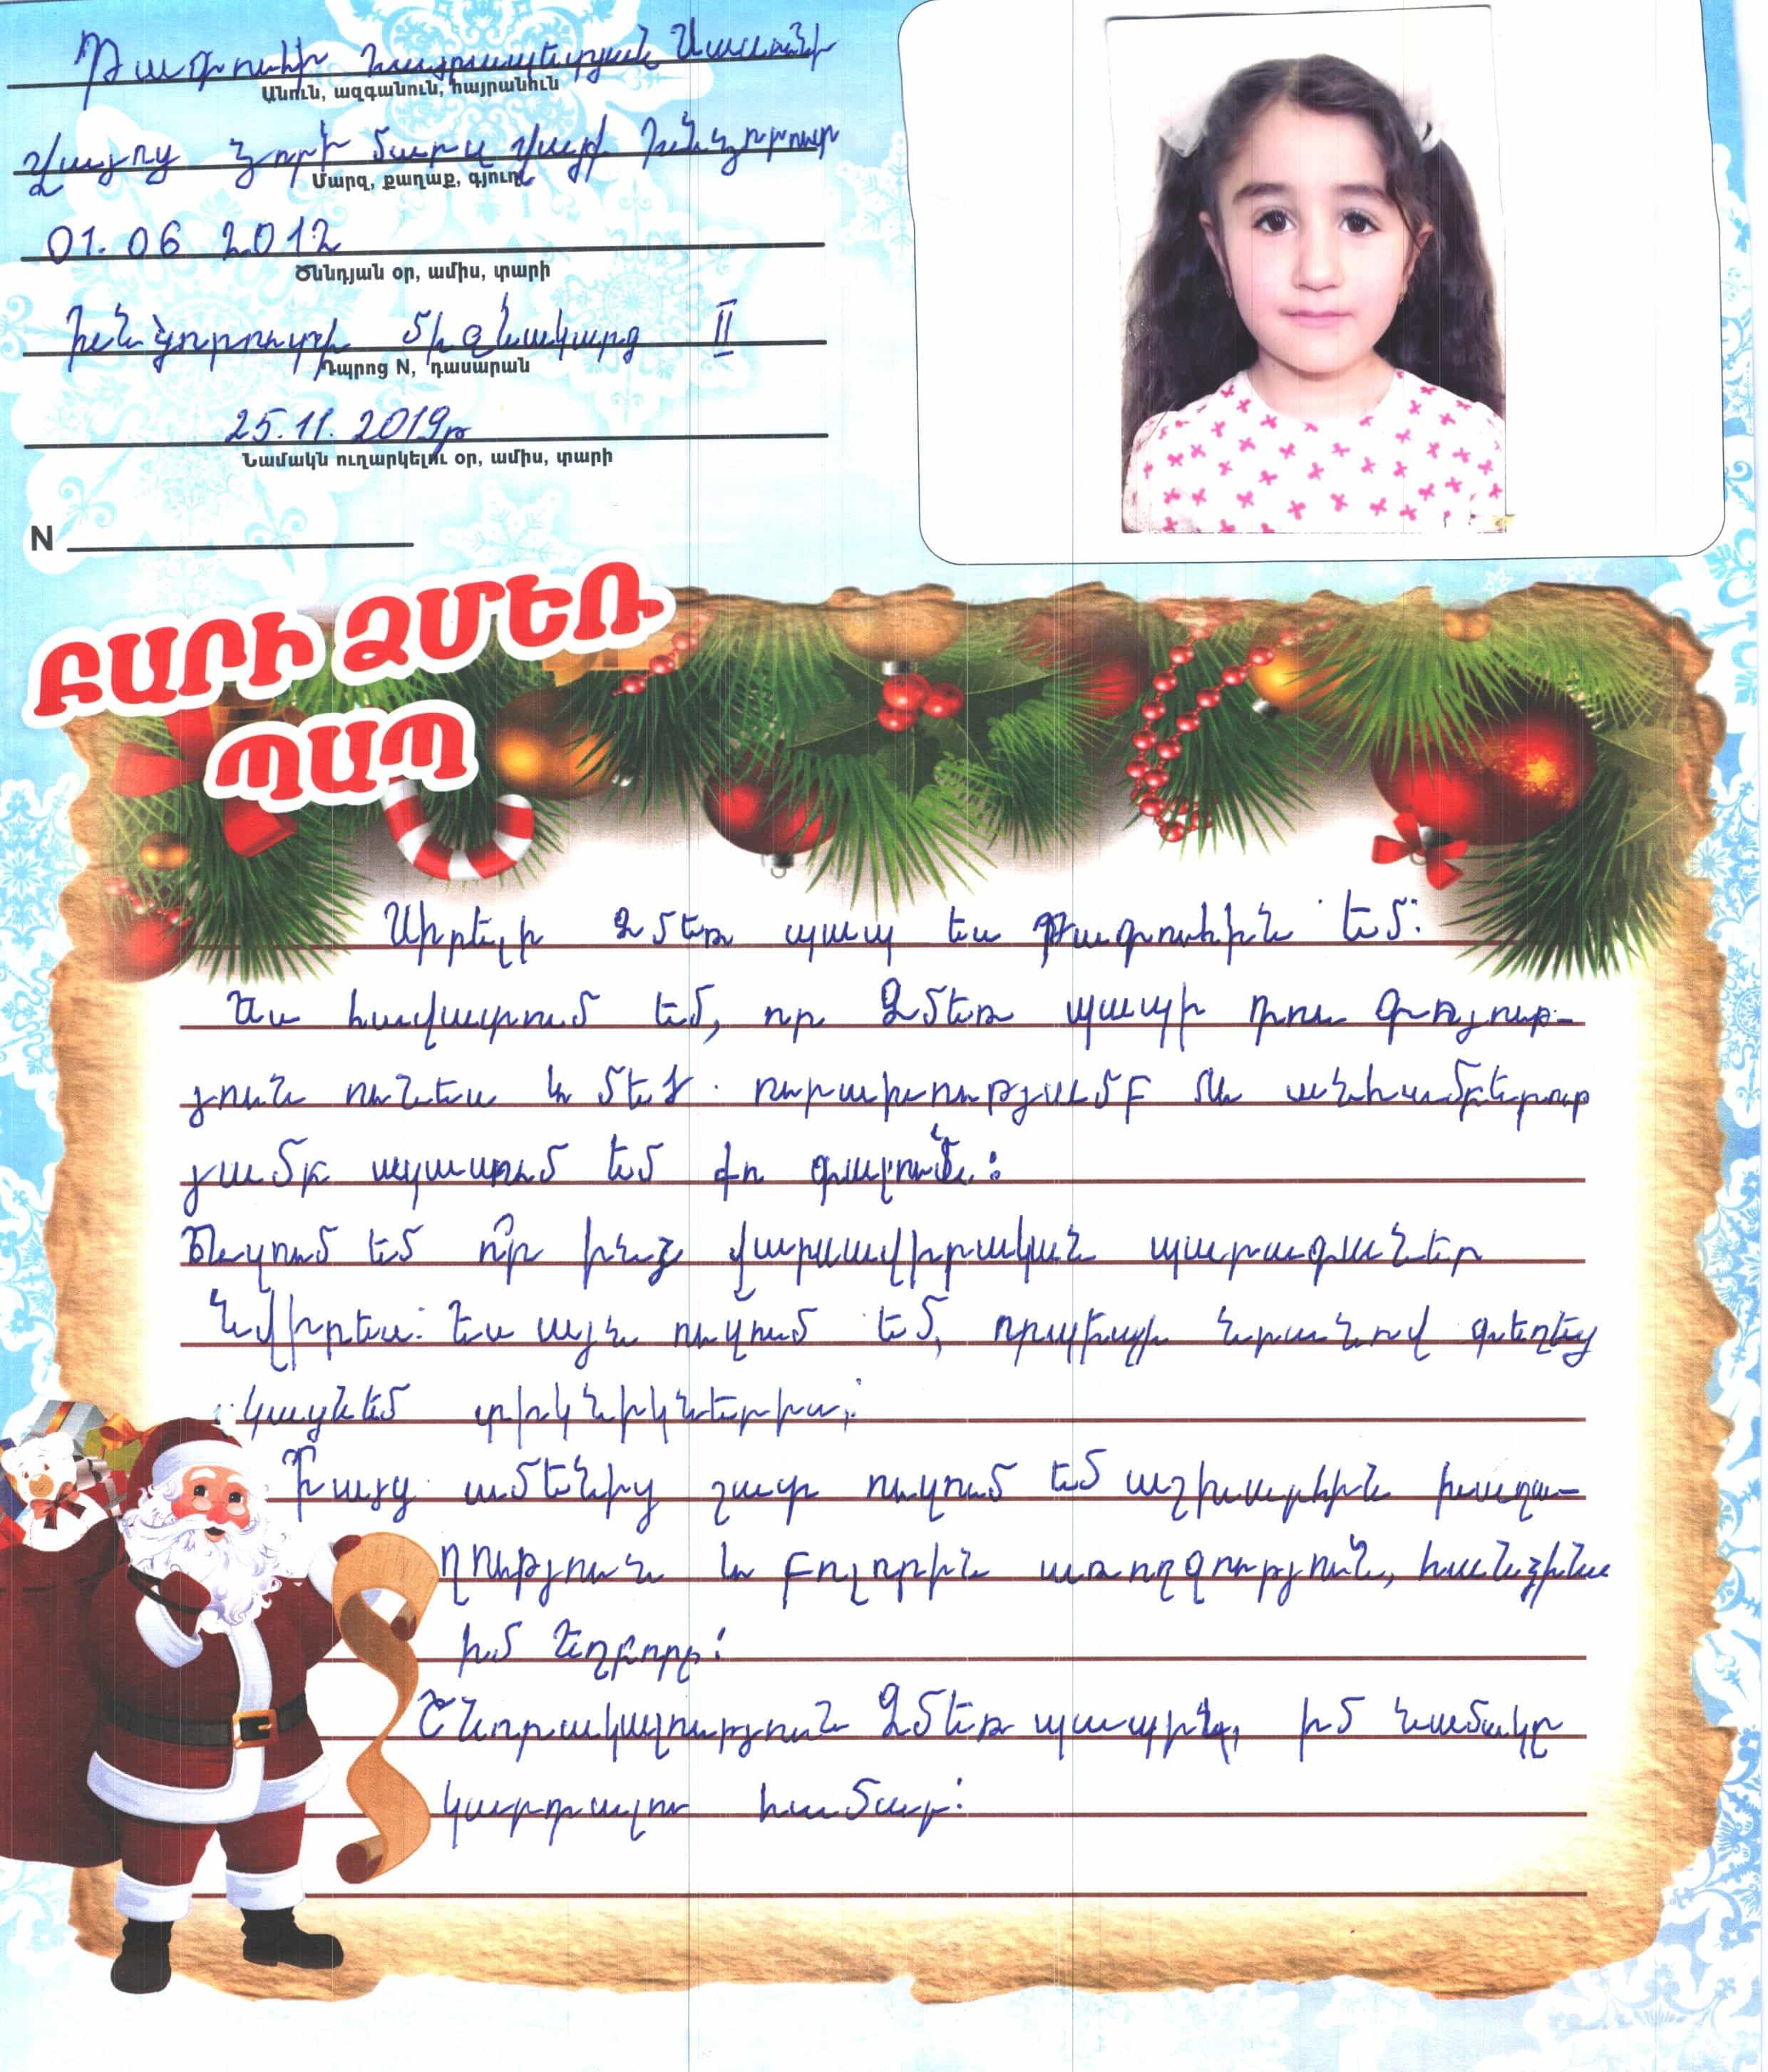 Թագուհի Նահրապետյան Սասունի
Անուն, ազգանուն, հայրանուն
Վայոց Ձորի մարզ Վայք Խնձորուտ
Մարզ, քաղաք, գյուղ
01.06 2012
Ծննդյան օր, ամիս, տարի
Խնձորուտի միջնակարգ II
Դպրոց N, դասարան
25.11.2019թ
Նամակն ուղարկելու օր, ամիս, տարի
N
ԲԱՐԻ ՁՄԵՌ
ՊԱՊ
Սիրելի Ձմեռ պապ ես Թագուհին եմ:
Ես հավատում եմ, որ Ձմեռ պապի դու գոյութ-
յուն ունես և մեծ ուրախությամբ ու անհամբերութ
յամբ սպասում եմ քո գալուն:
Ուզում եմ որ ինձ վարսավիրական պարագաներ
նվիրես: Ես այն ուզում եմ, որպեսզի նրանով գեղեցկացնեմ տիկնիկներիս:
Բայց ամենից շատ ուզում եմ աշխարհին խաղա-
ղություն և բոլորին առողջություն, հանձինս
իմ եղբորը:
Շնորհակալություն Ձմեռ պապիկ, իմ նամակը
կարդալու համար: